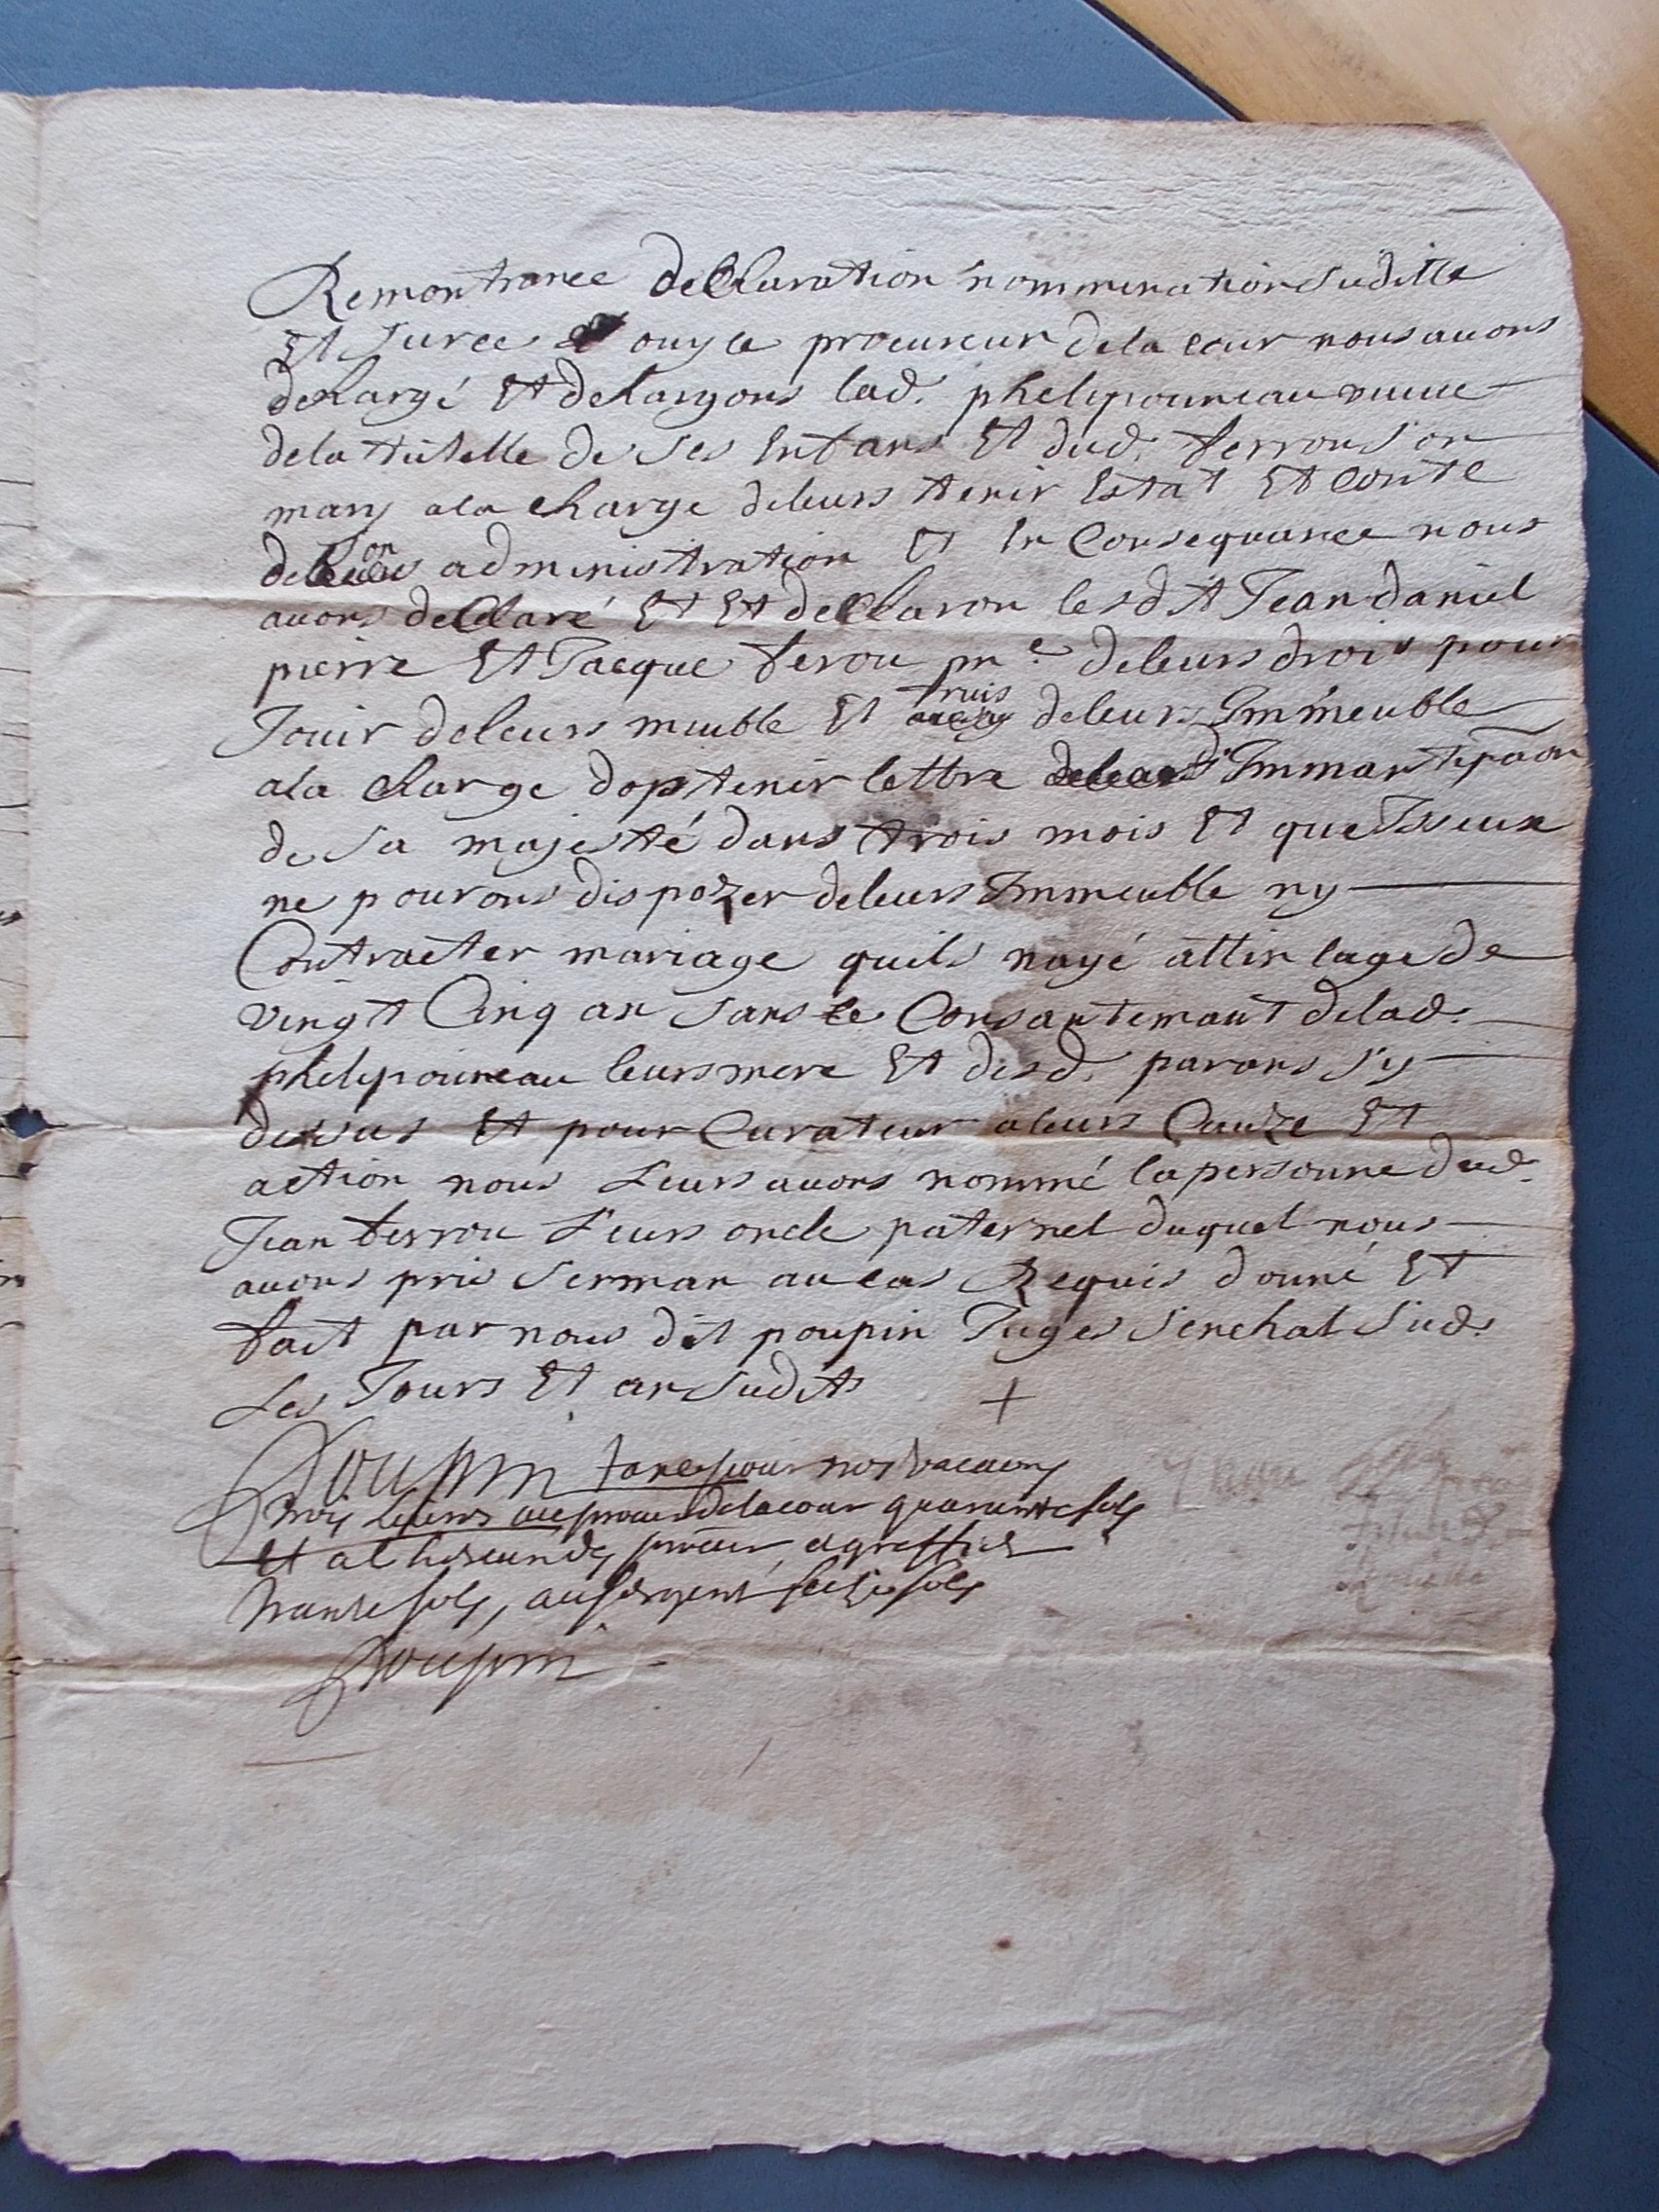 Remontrance declaration nommination suditte
Et sur ce ouy le procureur de la cour nous avons
decharge Et dechargons lad. phelipouneau veuve
de la tutelle de ses Enfans Et dud. ferrou son
mary a la charge de leurs tenir Estat Et conte
de son administration Et En Consequance nous
avons declaré Et Et declaron lesdit Jean daniel
pierre Et Jacque ferou me de leurs droit pour
Jouir de leurs meuble Et fruis de leurs Immeuble
a la charge doptenir lettre d'Immantipaon
de sa majesté dans trois mois Et que Isseux
ne pouront dispozer de leurs Immeuble ny
Contracter mariage quils nayé attin lage de
vingt Cinq an sans le Consantemant de lad.
phelipouneau leurs mere Et desd. parans sy
dessus Et pour Curateur a leurs Cauze Et
action nous Leurs avons nommé la personne dud.
Jean ferrou Leurs oncle paternel duquel nous
avons pris serman au cas Requis donné Et
fait par nous dit poupin Juges senehal sud.
Les Jours Et an sudits +
Poupin taxé pour nos vacaons
trois livres au procur de la cour quarante sols
Et a procur, a greffier
trante sols, au sergent seize sols
Poupin